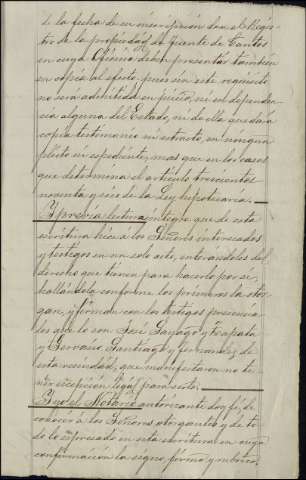 de la fecha de su inscripcion en el Regis-
tro de la propiedad de Fuente de Cantos
en cuya Oficina deben presentar tambien
su copia al efecto pues sin este requisito
no será admitida en juicio, ni en dependen-
cia alguna del Estado, ni de ella quedará
copia testimonio ni extracto, en ningun
pleito ni espediente, mas que en los casos
que determina el artículo trescientos
noventa y seis de la Ley hipotecaria.
Y previa lectura íntegra que de esta
escritura hice á los Señores interesados
y testigos en un solo acto, enterándoles del
derecho que tienen para hacerlo por sí,
hallándola conforme los primeros la otor-
gan, y firman con los testigos presencia-
les que lo son José Gayago y Zapata
y Gervasio Santiago y Fernandez de
esta vecindad, que manifestaron no te-
ner excepcion legal para serlo.
Y yo el Notario autorizante doy fé, de
conocer á los Señores otorgantes y de to-
do lo espresado en esta escritura en cuya
confirmacion la signo, firmo y rubrico.